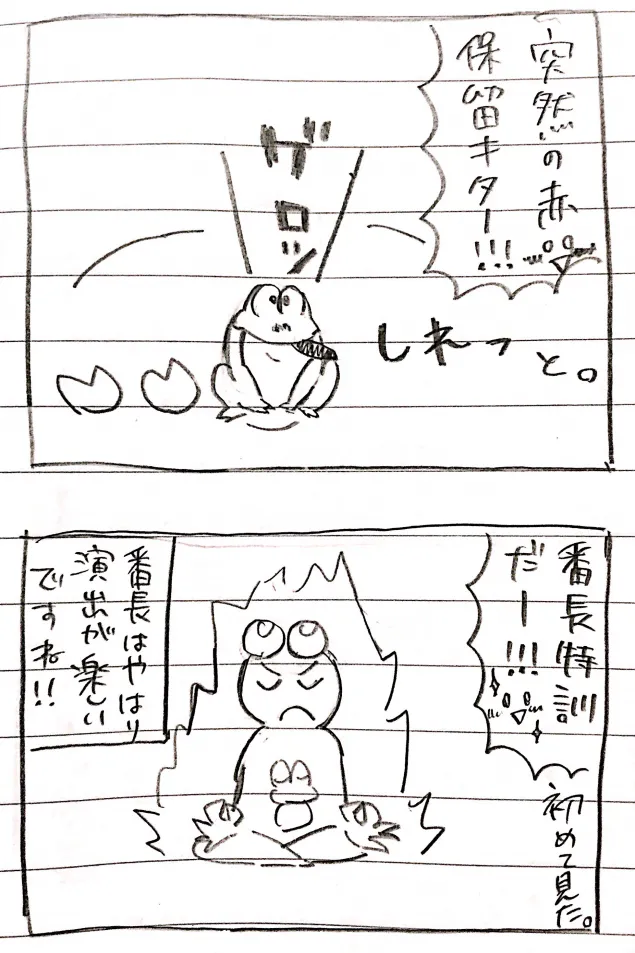 突然の赤
保留キター!!!
ゲロッ
しれーっと。
番長特訓
だー!!!
初めて見た。
番長はやはり
演出が楽しい
ですね!!